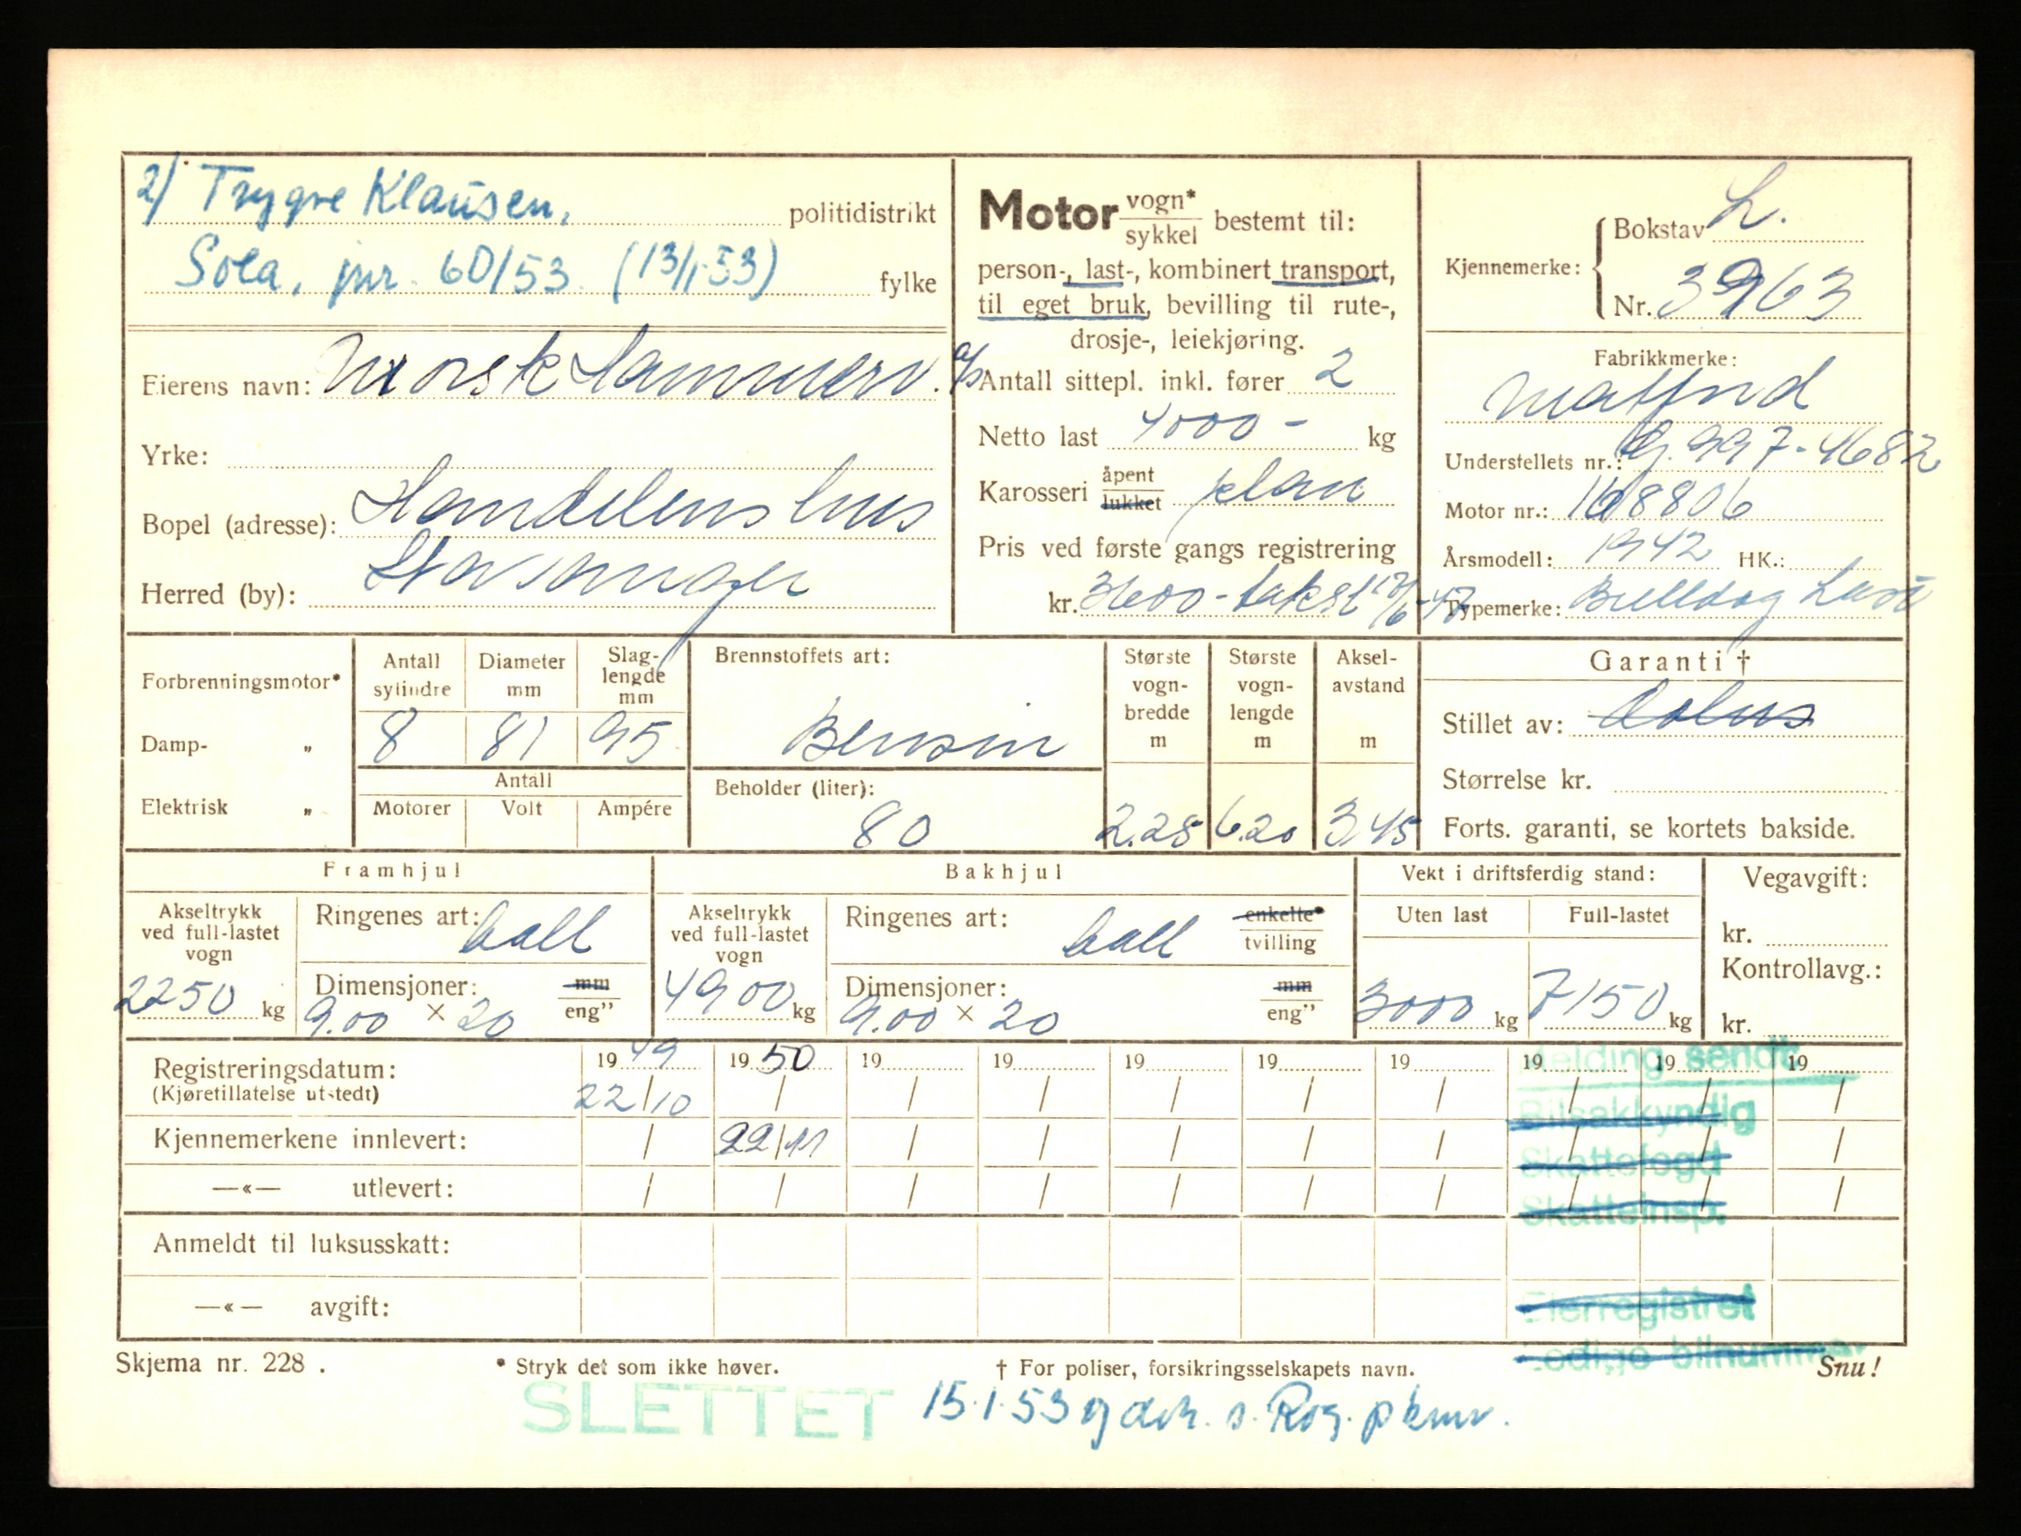 2) Trygve Klausen, politidistrikt
Sola, jnr. 60/53 (13/1-53) fylke
Eierens navn: Norsk Hammerv. A/S
Yrke:
Bopel (adresse): Handelens hus
Herred (by): Stavanger
Motor vogn* sykkel bestemt til:
person-, last-, kombinert transport,
til eget bruk, bevilling til rute-,
drosje-, leiekjøring.
Antall sittepl. inkl. fører 2
Netto last 4000 - kg
Karosseri åpent lukket plan
Pris ved første gangs registrering
kr. 3600 - takst
Kjennemerke: Bokstav L.
Nr. 3963
Fabrikkmerke:
Matford
Understellets nr.: G. 997-4682
Motor nr.: 168806
Årsmodell: 1942 HK.:
Typemerke: Bulldog Last
Forbrenningsmotor*
Damp- „
Elektrisk „
Antall sylindre 8
Diameter mm 81
Slag-lengde mm 95
Antall
Motorer Volt Ampére
Brennstoffets art:
Bensin
Beholder (liter):
80
Største vogn-bredde m 2.25
Største vogn-lengde m 6.20
Aksel-avstand m 3.45
Garanti †
Stillet av: Aolus
Størrelse kr.
Forts. garanti, se kortets bakside.
Framhjul
Akseltrykk ved full-lastet vogn 2250 kg
Ringenes art: ball
Dimensjoner: mm eng"
9.00 × 20
Bakhjul
Akseltrykk ved full-lastet vogn 4900 kg
Ringenes art: ball enkelte* tvilling
Dimensjoner: mm eng"
9.00 × 20
Vekt i driftsferdig stand:
Uten last Full-lastet
3000 kg 7150 kg
Vegavgift:
kr.
Kontrollavg.:
kr.
Registreringsdatum: 1949 1950 19 19 19 19 19 19 19 19
(Kjøretillatelse utstedt) 22/10 / / / / / / / / /
Kjennemerkene innlevert: / 22/11 / / / / / / / /
—«— utlevert: / / / / / / / / / /
Anmeldt til luksusskatt:
—«— avgift:
Melding sendt:
Bilsakkyndig
Skattefogd
Skatteinsp.
Eierregistret
Ledige bilnummer
Skjema nr. 228 . * Stryk det som ikke høver. † For poliser, forsikringsselskapets navn. Snu!
SLETTET 15.1.53 s. Rog.